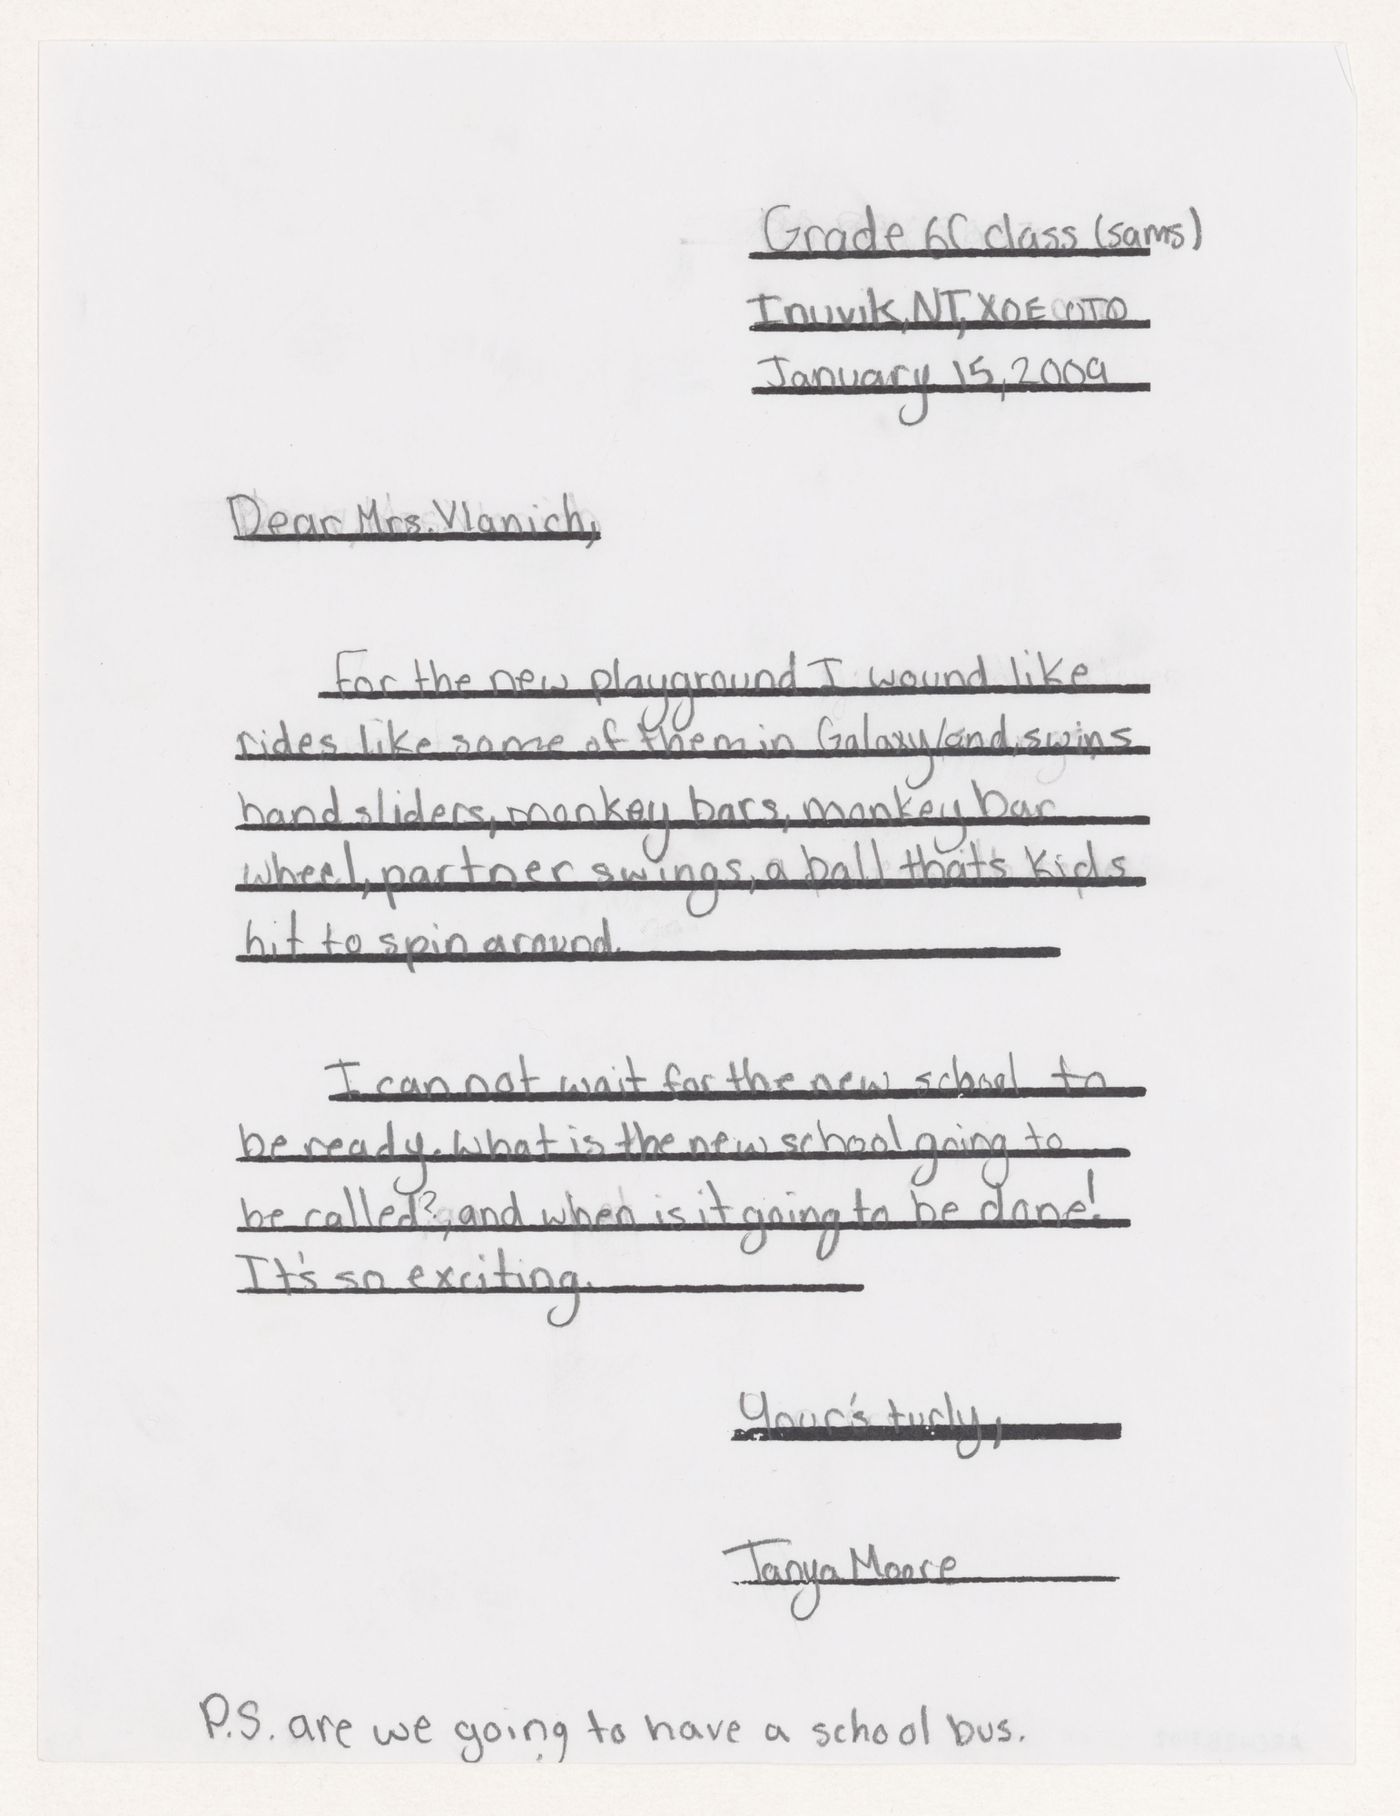 Grade 6C class (sams)
Inuvik, NT, XOE OTO
January 15, 2009
Dear Mrs. Vlanich,
For the new playground I wound like
rides like some of them in Galaxy/and swins
hand sliders, monkey bars, monkey bar
wheel, partner swings, a ball thats kids
hit to spin around.
I can not wait for the new school to
be ready. What is the new school going to
be called?, and when is it going to be done!
It's so exciting.
Your's turly,
Tanya Moore
P.S. are we going to have a school bus.